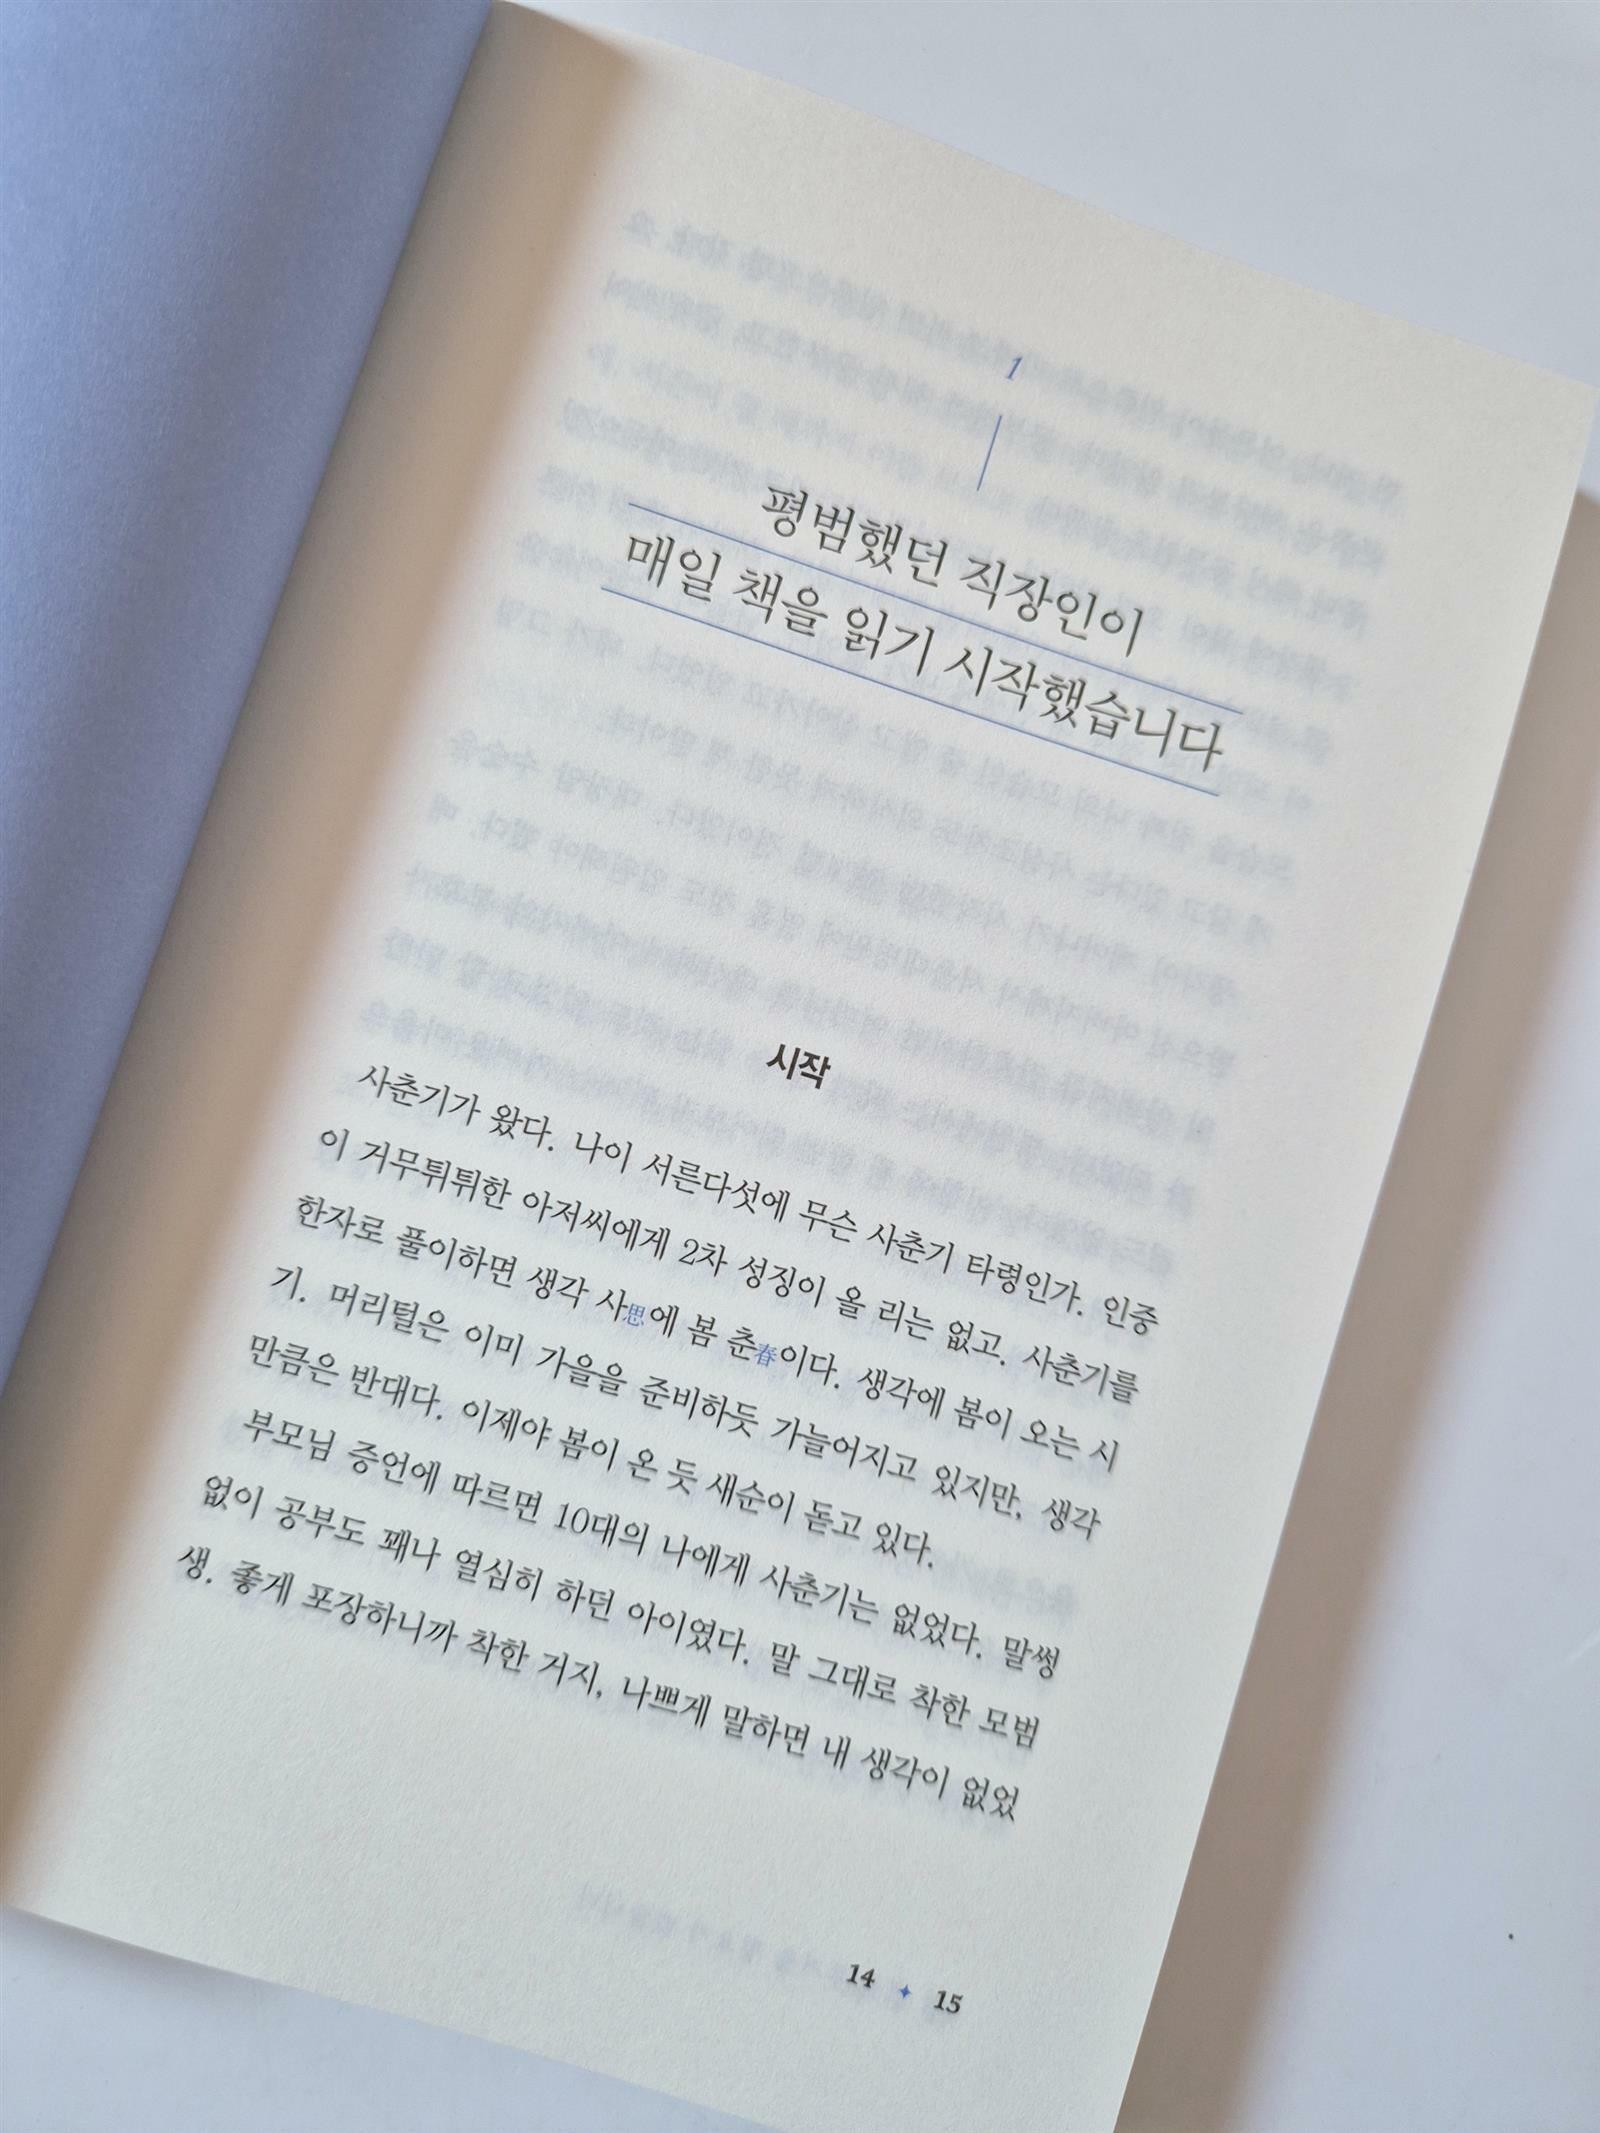 1
평범했던 직장인이
매일 책을 읽기 시작했습니다
시작
사춘기가 왔다. 나이 서른다섯에 무슨 사춘기 타령인가. 인중
이 거무튀튀한 아저씨에게 2차 성징이 올 리는 없고. 사춘기를
한자로 풀이하면 생각 사思에 봄 춘春이다. 생각에 봄이 오는 시
기. 머리털은 이미 가을을 준비하듯 가늘어지고 있지만, 생각
만큼은 반대다. 이제야 봄이 온 듯 새순이 돋고 있다.
부모님 증언에 따르면 10대의 나에게 사춘기는 없었다. 말썽
없이 공부도 꽤나 열심히 하던 아이였다. 말 그대로 착한 모범
생. 좋게 포장하니까 착한 거지, 나쁘게 말하면 내 생각이 없었
14 ✦ 15